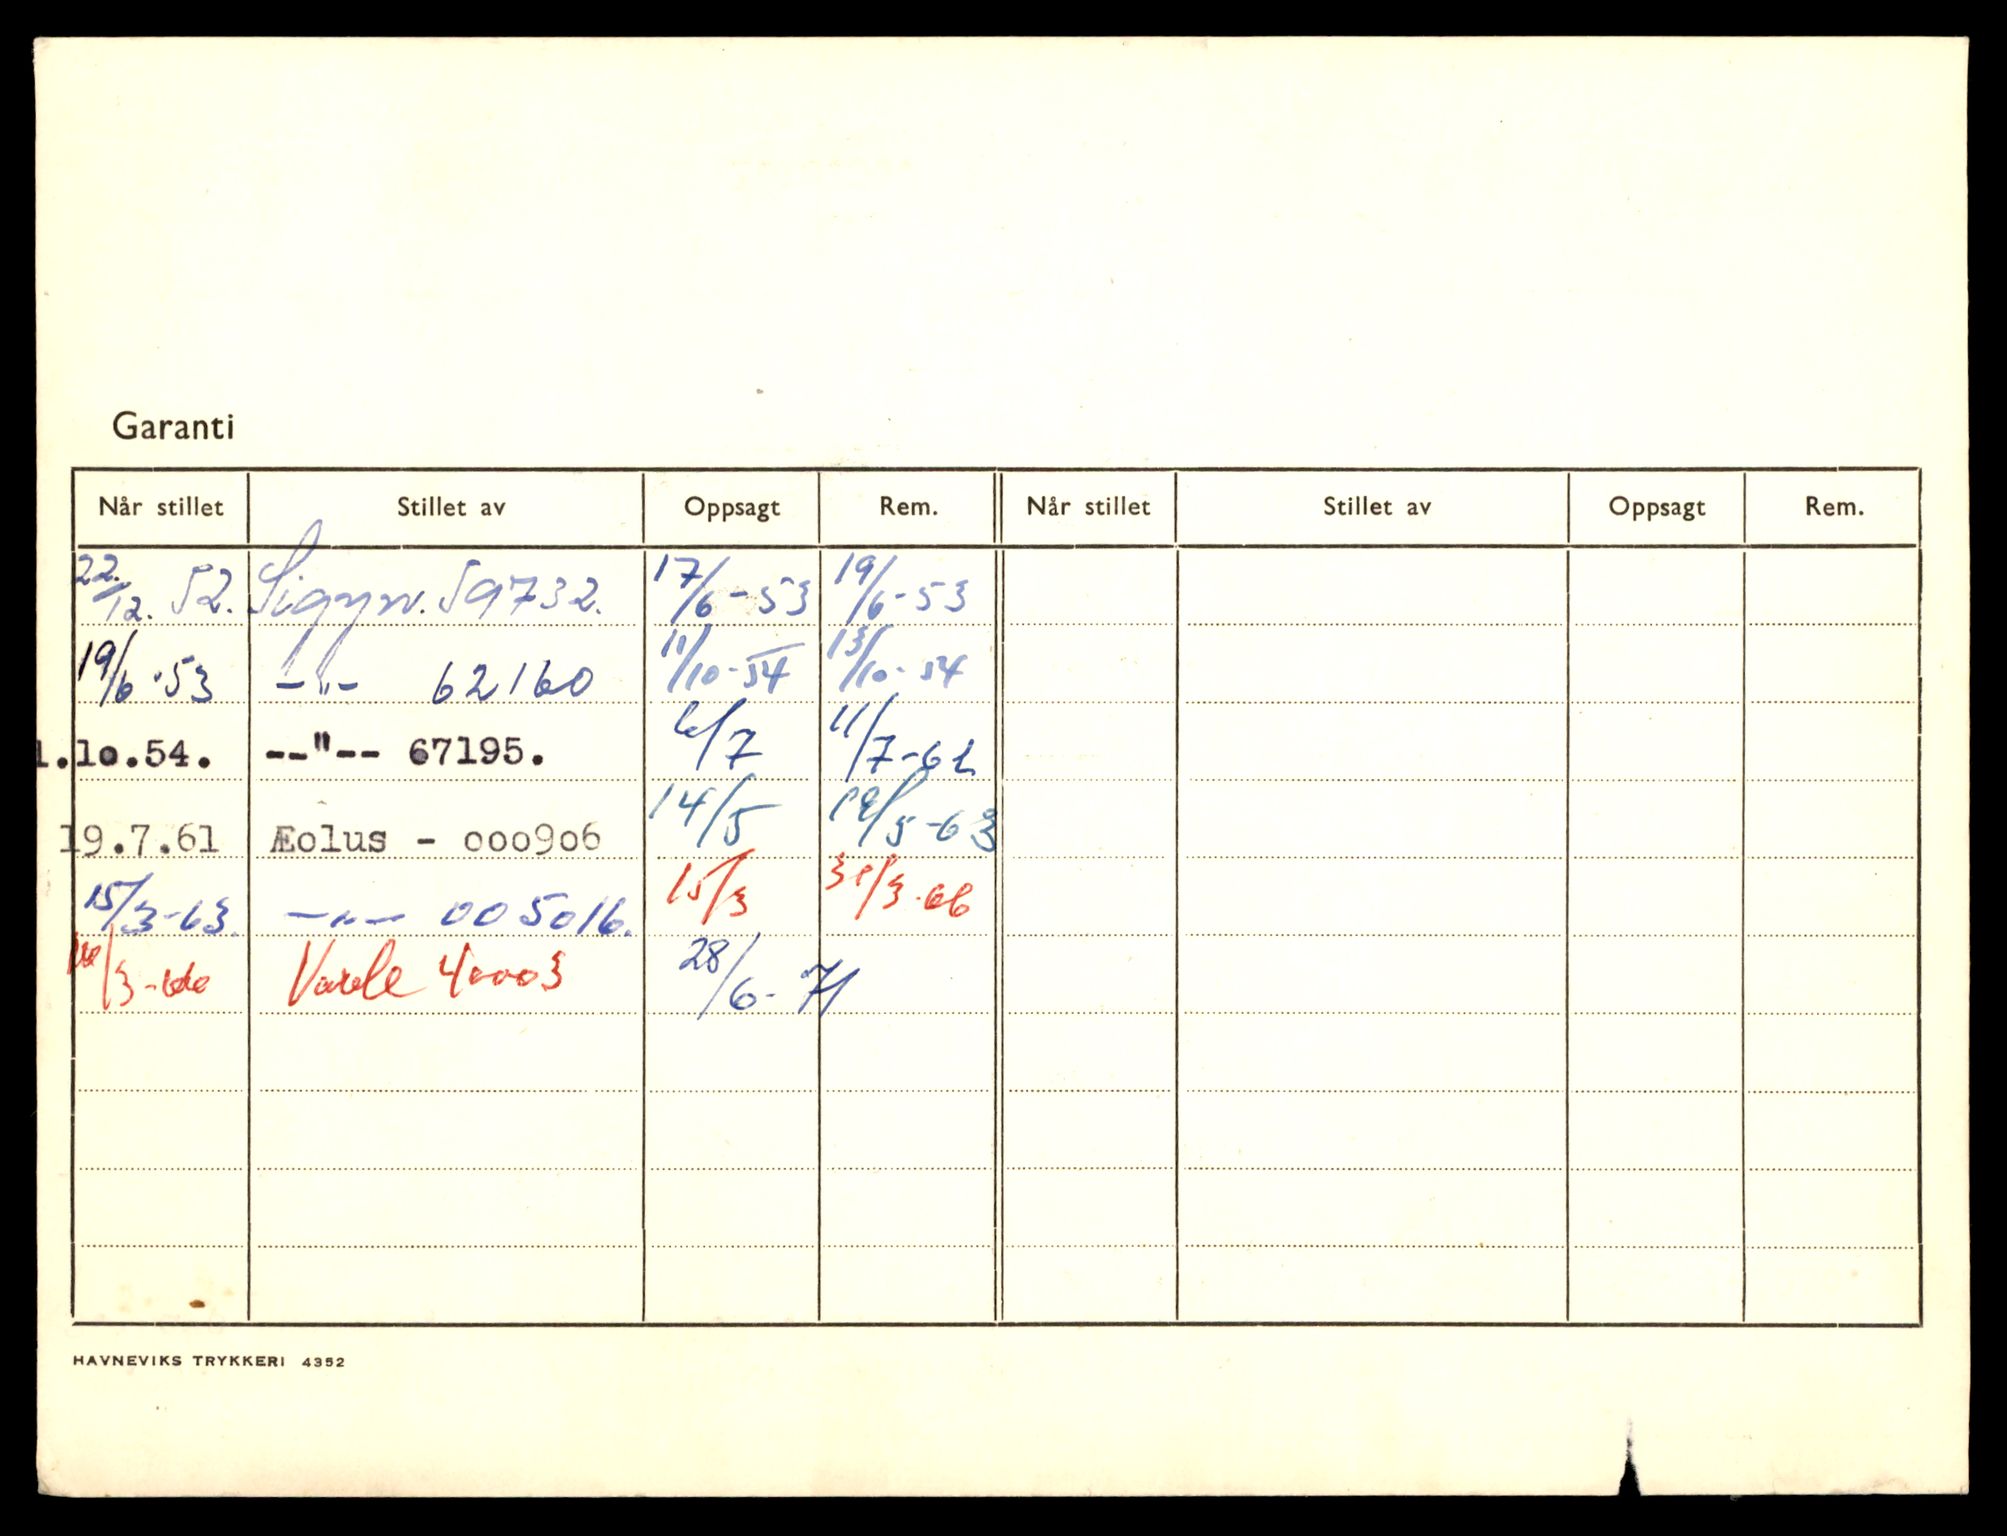 Garanti
Når stillet Stillet av Oppsagt Rem. Når stillet Stillet av Oppsagt Rem.
22/12. 52. Sigyn. 59732. 17/6-53 19/6-53
19/6-53 -"- 62160 11/10-54 13/10-54
1.10.54. --"-- 67195. 6/7 11/7-61
19.7.61 Æolus - 000906 14/5 19/5-63
15/3-63. -"- 005016. 15/3 31/3-66
3-66 Varde 40003 28/6-71
HAVNEVIKS TRYKKERI 4352